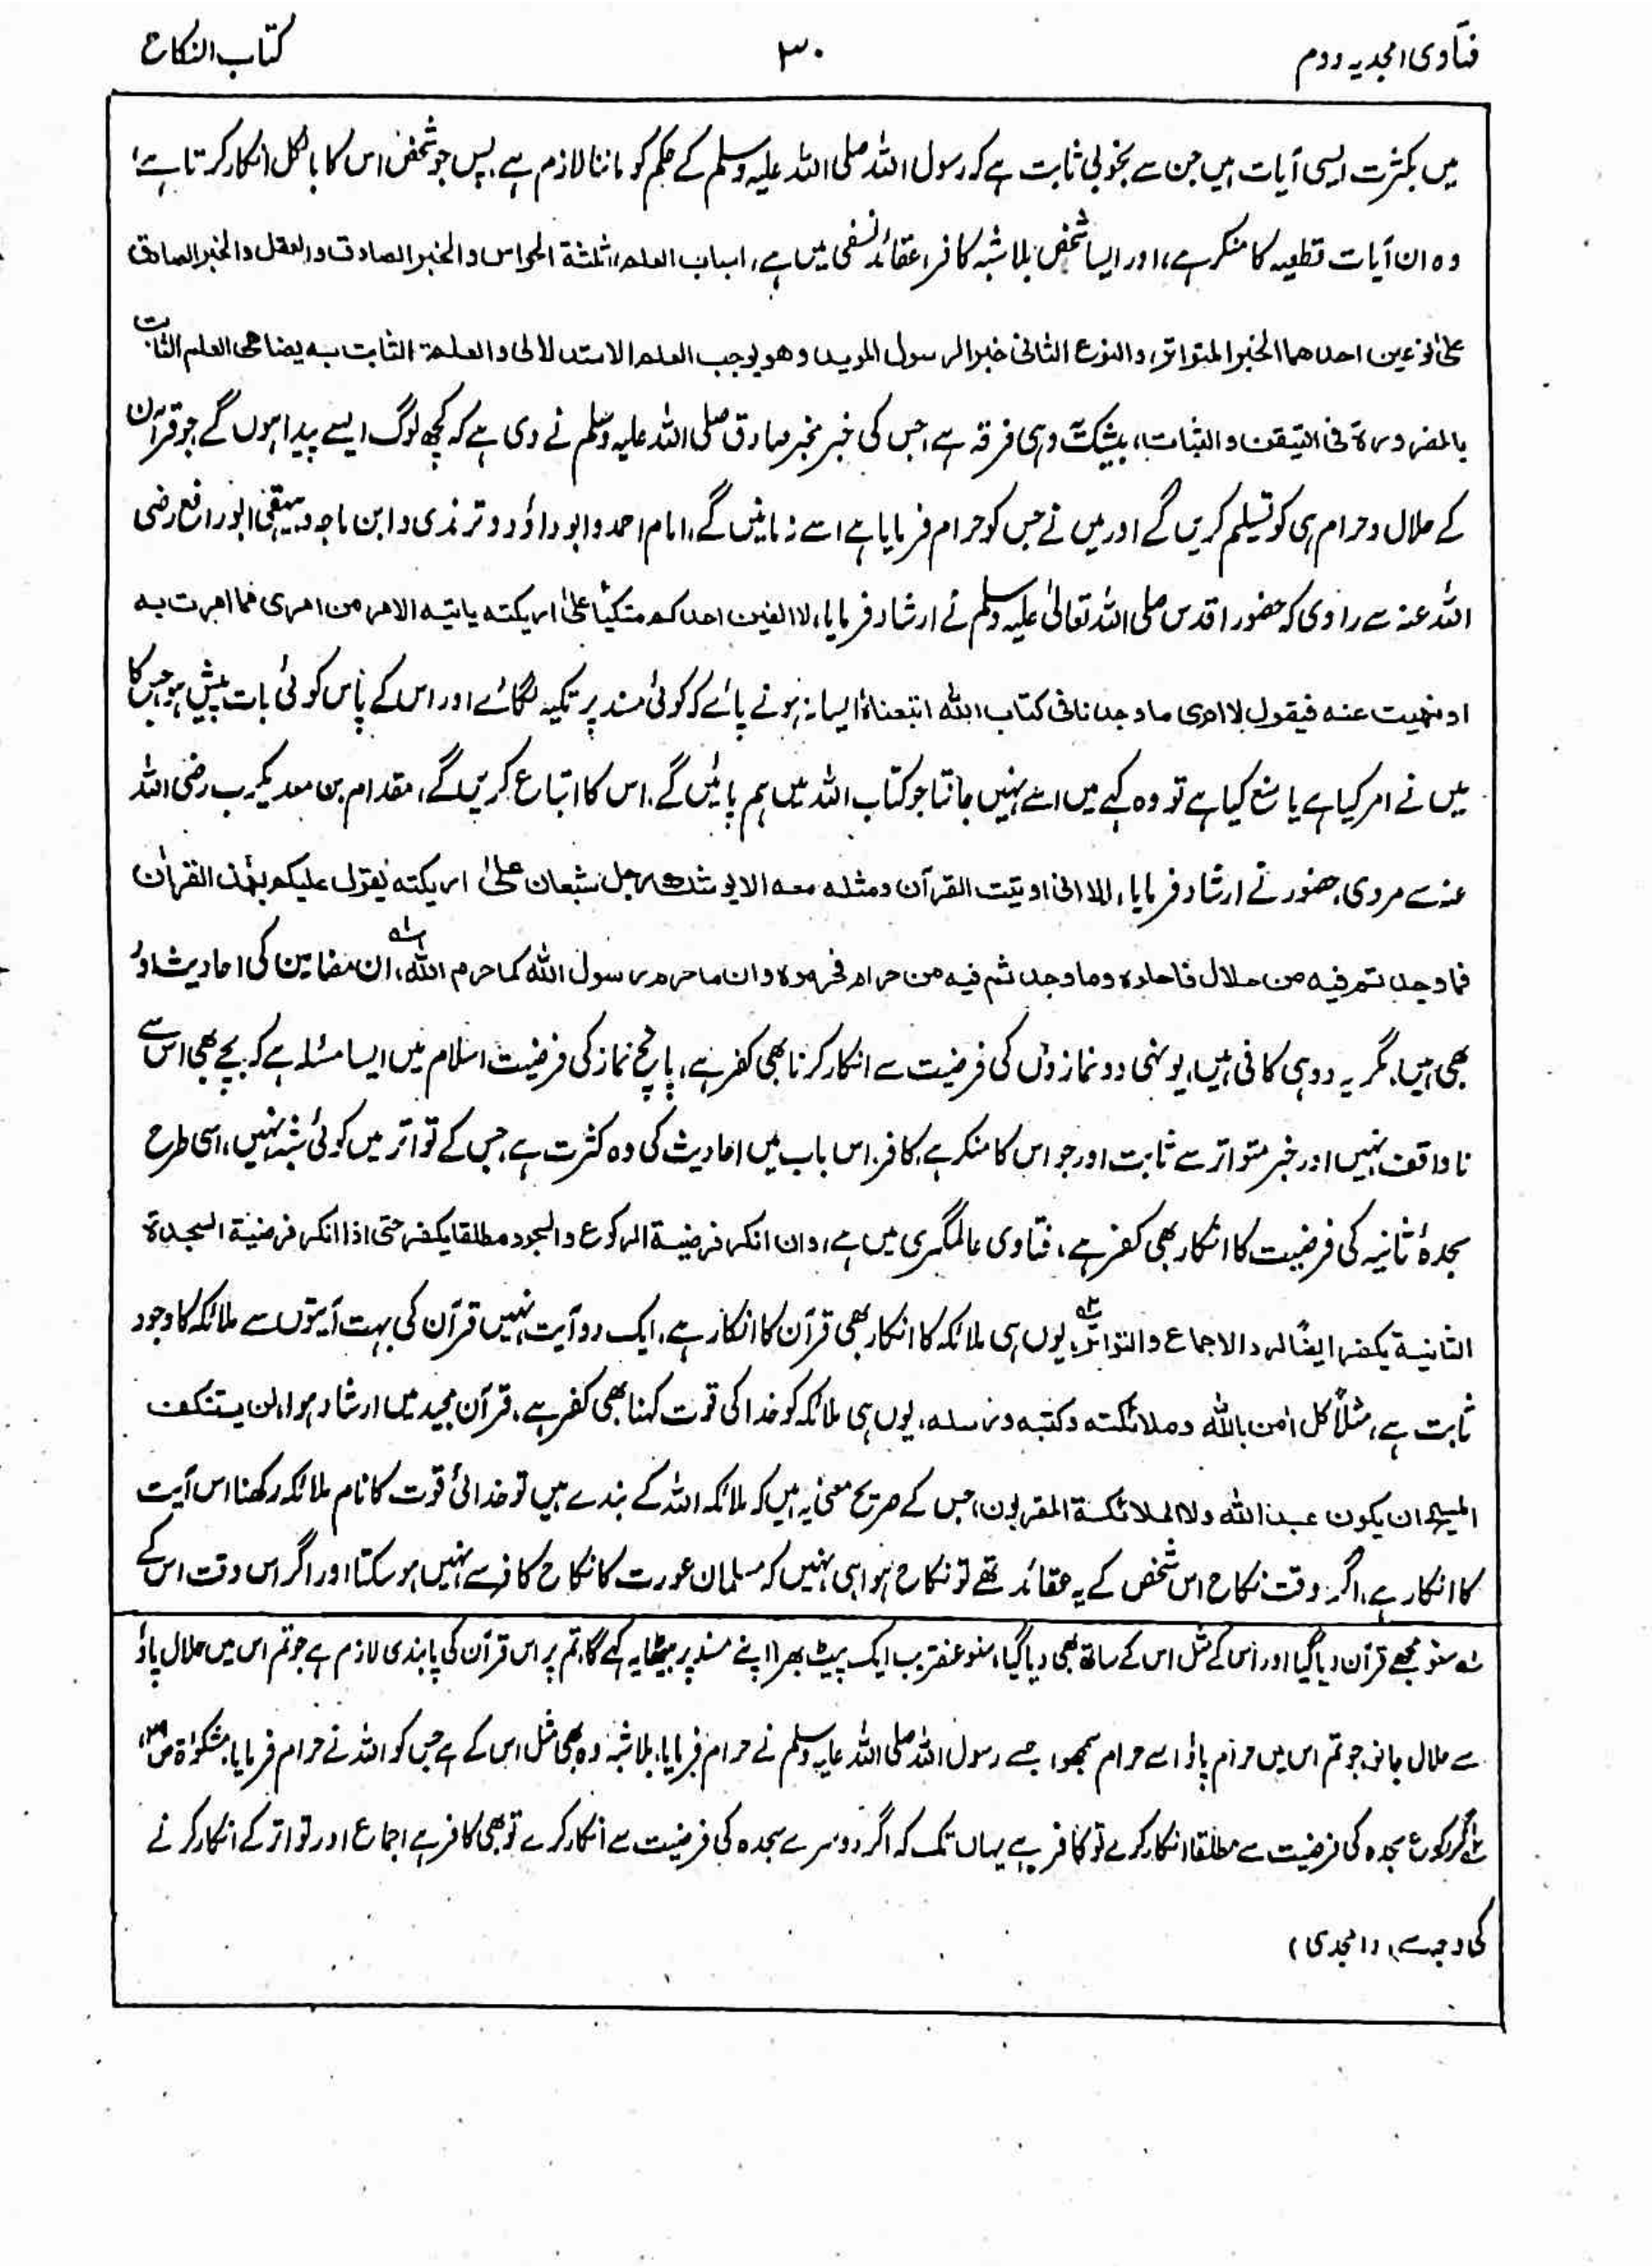 فتاوی امجدیہ دوم
۳۰
کتاب النکاح
میں بکثرت ایسی آیات ہیں جن سے بخوبی ثابت ہے کہ رسول اللہ صلی اللہ علیہ وسلم کے حکم کو ماننا لازم ہے. پس جو شخص اس کا بالکل انکار کرتا ہے،
وہ ان آیات قطعیہ کا منکر ہے، اور ایسا شخص بلا شبہ کافر، عقائد نسفی میں ہے، اسباب العلم ثلثة الحواس والخبر الصادق والعقل والخبر الصادق
علیٰ نوعین احدهما الخبر المتواتر، والنوع الثانی خبر الرسول المؤید وهو یوجب العلم الاستدلالی والعلم الثابت به یضاهی العلم الثابت
بالضرورة فی التیقن والثبات، بیشک وہی فرقہ ہے، جس کی خبر مخبر صادق صلی اللہ علیہ وسلم نے دی ہے کہ کچھ لوگ ایسے پیدا ہوں گے جو قرآن
کے حلال و حرام ہی کو تسلیم کریں گے اور میں نے جس کو حرام فرمایا ہے اسے نہ مانیں گے، امام احمد و ابو داؤد و ترمذی و ابن ماجہ و بیہقی ابو رافع رضی
اللہ عنہ سے راوی کہ حضور اقدس صلی اللہ تعالیٰ علیہ وسلم نے ارشاد فرمایا، لا الفین احدکم متکیًا علیٰ اریکته یاتیه الامر من امری مما امرت به
او نهیت عنه فیقول لا ادری ما وجدنا فی کتاب الله اتبعناه ایسا نہ ہونے پائے کہ کوئی مسند پر تکیہ لگائے اور اس کے پاس کوئی بات پیش ہو جس کا
میں نے امر کیا ہے یا منع کیا ہے تو وہ کہے میں اسے نہیں جانتا جو کتاب اللہ میں ہم پائیں گے. اس کا اتباع کریں گے، مقدام بن معد یکرب رضی اللہ
عنہ سے مروی. حضور نے ارشاد فرمایا، الا انی اوتیت القرآن ومثله معه الا یوشک رجل شبعان علیٰ اریکته یقول علیکم بهٰذا القرآن
فما وجدتم فیه من حلال فاحلوه وما وجدتم فیه من حرام فحرموه وان ما حرم رسول الله کما حرم الله، ان مضامین کی احادیث اور
بھی ہیں. مگر یہ دو ہی کافی ہیں، یونہی دو نمازوں کی فرضیت سے انکار کرنا بھی کفر ہے، پانچ نماز کی فرضیت اسلام میں ایسا مسئلہ ہے کہ بچے بھی اس سے
ناواقف نہیں اور خبر متواتر سے ثابت اور جو اس کا منکر ہے. کافر. اس باب میں احادیث کی وہ کثرت ہے جس کے تواتر میں کوئی شبہ نہیں، اسی طرح
سجدۂ ثانیہ کی فرضیت کا انکار بھی کفر ہے، فتاوی عالمگیری میں ہے، وان انکر فرضیة الرکوع والسجود مطلقا یکفر حتی اذا انکر فرضیة السجدة
الثانیة یکفر ایضًا لرد الاجماع والتواتر، یوں ہی ملائکہ کا انکار بھی قرآن کا انکار ہے، ایک دو آیت نہیں قرآن کی بہت آیتوں سے ملائکہ کا وجود
ثابت ہے، مثلاً کل اٰمن بالله وملائکته وکتبه ورسله، یوں ہی ملائکہ کو خدا کی قوت کہنا بھی کفر ہے، قرآن مجید میں ارشاد ہوا، لن یستنکف
المسیح ان یکون عبدا لله ولا الملائکة المقربون، جس کے صریح معنی یہ ہیں کہ ملائکہ اللہ کے بندے ہیں تو خدائی قوت کا نام ملائکہ رکھنا اس آیت
کا انکار ہے، اگر وقت نکاح اس شخص کے یہ عقائد تھے تو نکاح ہوا ہی نہیں کہ مسلمان عورت کا نکاح کافر سے نہیں ہو سکتا اور اگر اس وقت اس کے
سنو مجھے قرآن دیا گیا اور اس کے مثل اس کے ساتھ بھی دیا گیا، سنو عنقریب ایک پیٹ بھرا اپنے مسند پر بیٹھا یہ کہے گا، تم پر اس قرآن کی پابندی لازم ہے جو تم اس میں حلال پاؤ
سے حلال جانو جو تم اس میں حرام پاؤ اسے حرام سمجھو، جسے رسول اللہ صلی اللہ علیہ وسلم نے حرام فرمایا، بلا شبہ وہ بھی مثل اس کے ہے جس کو اللہ نے حرام فرمایا. مشکوٰۃ
اگر رکوع سجدہ کی فرضیت سے مطلقا انکار کرے تو کافر ہے یہاں تک کہ اگر دوسرے سجدہ کی فرضیت سے انکار کرے تو بھی کافر ہے اجماع اور تواتر کے انکار کرنے
کی وجہ سے، (امجدی)